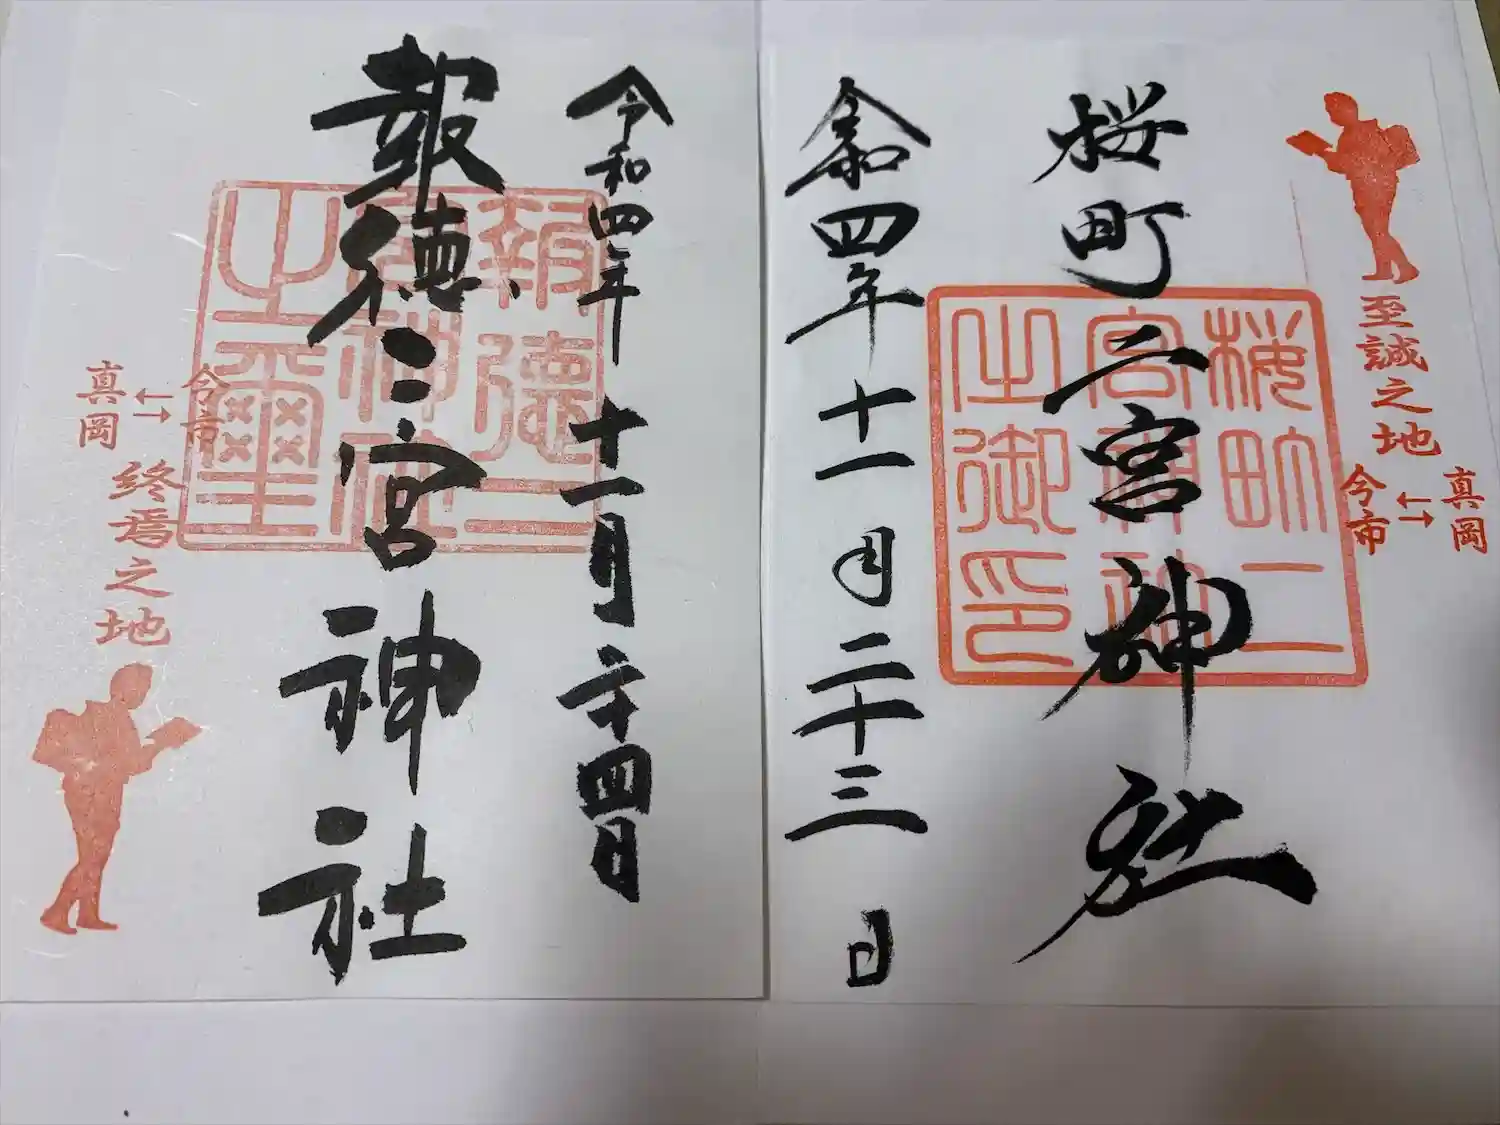 至誠之地
真岡
今市
桜町二宮神社
桜町二
宮神社
之御印
令和四年十一月二十三日
令和四年十一月二十四日
報徳二宮神社
報徳二
宮神社
之璽
今市
真岡
終焉之地